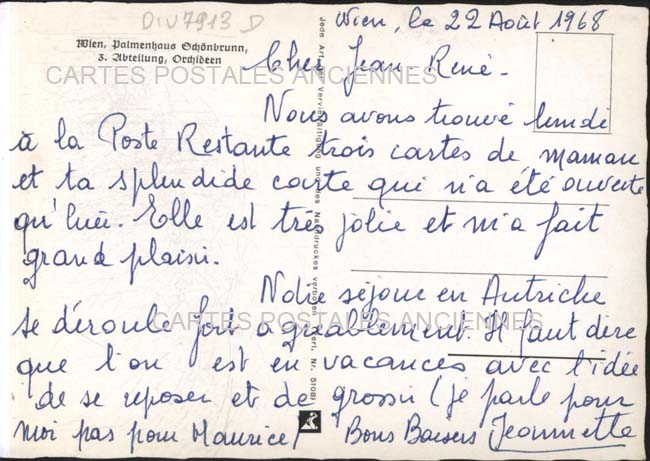 DIV7913 D
Wien, le 22 Août 1968
Wien, Palmenhaus Schönbrunn,
3. Abteilung, Orchideen
CARTES POSTALES ANCIENNES
Cher Jean-René.
Nous avons trouvé lundi
à la Poste Restante trois cartes de maman
et ta splendide carte qui n'a été ouverte
qu'hier. Elle est très jolie et m'a fait
grand plaisir.
Notre séjour en Autriche
CARTES POSTALES ANCIENNES
se déroule fort agréablement. Il faut dire
que l'on est en vacances avec l'idée
de se reposer et de grossir (je parle pour
moi pas pour Maurice)
Bons Baisers Jeannette
Jede Art der Vervielfältigung und des Nachdruckes verboten
Verl. Nr. 51081